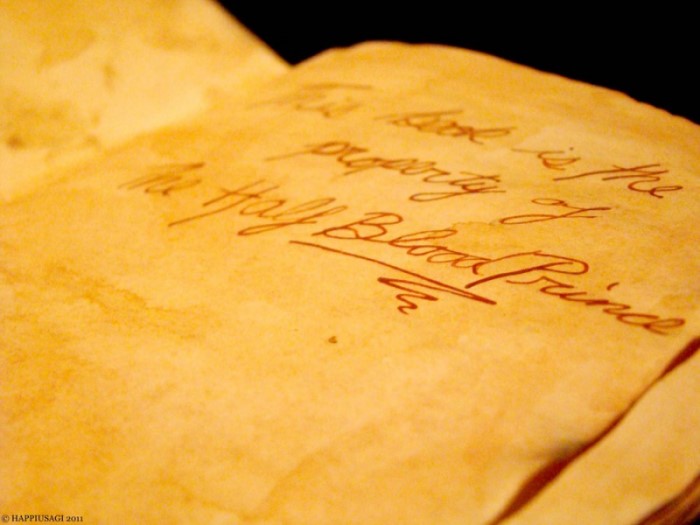 This Book is the
property of
The Half Blood Prince
© HAPPIUSAGI 2011